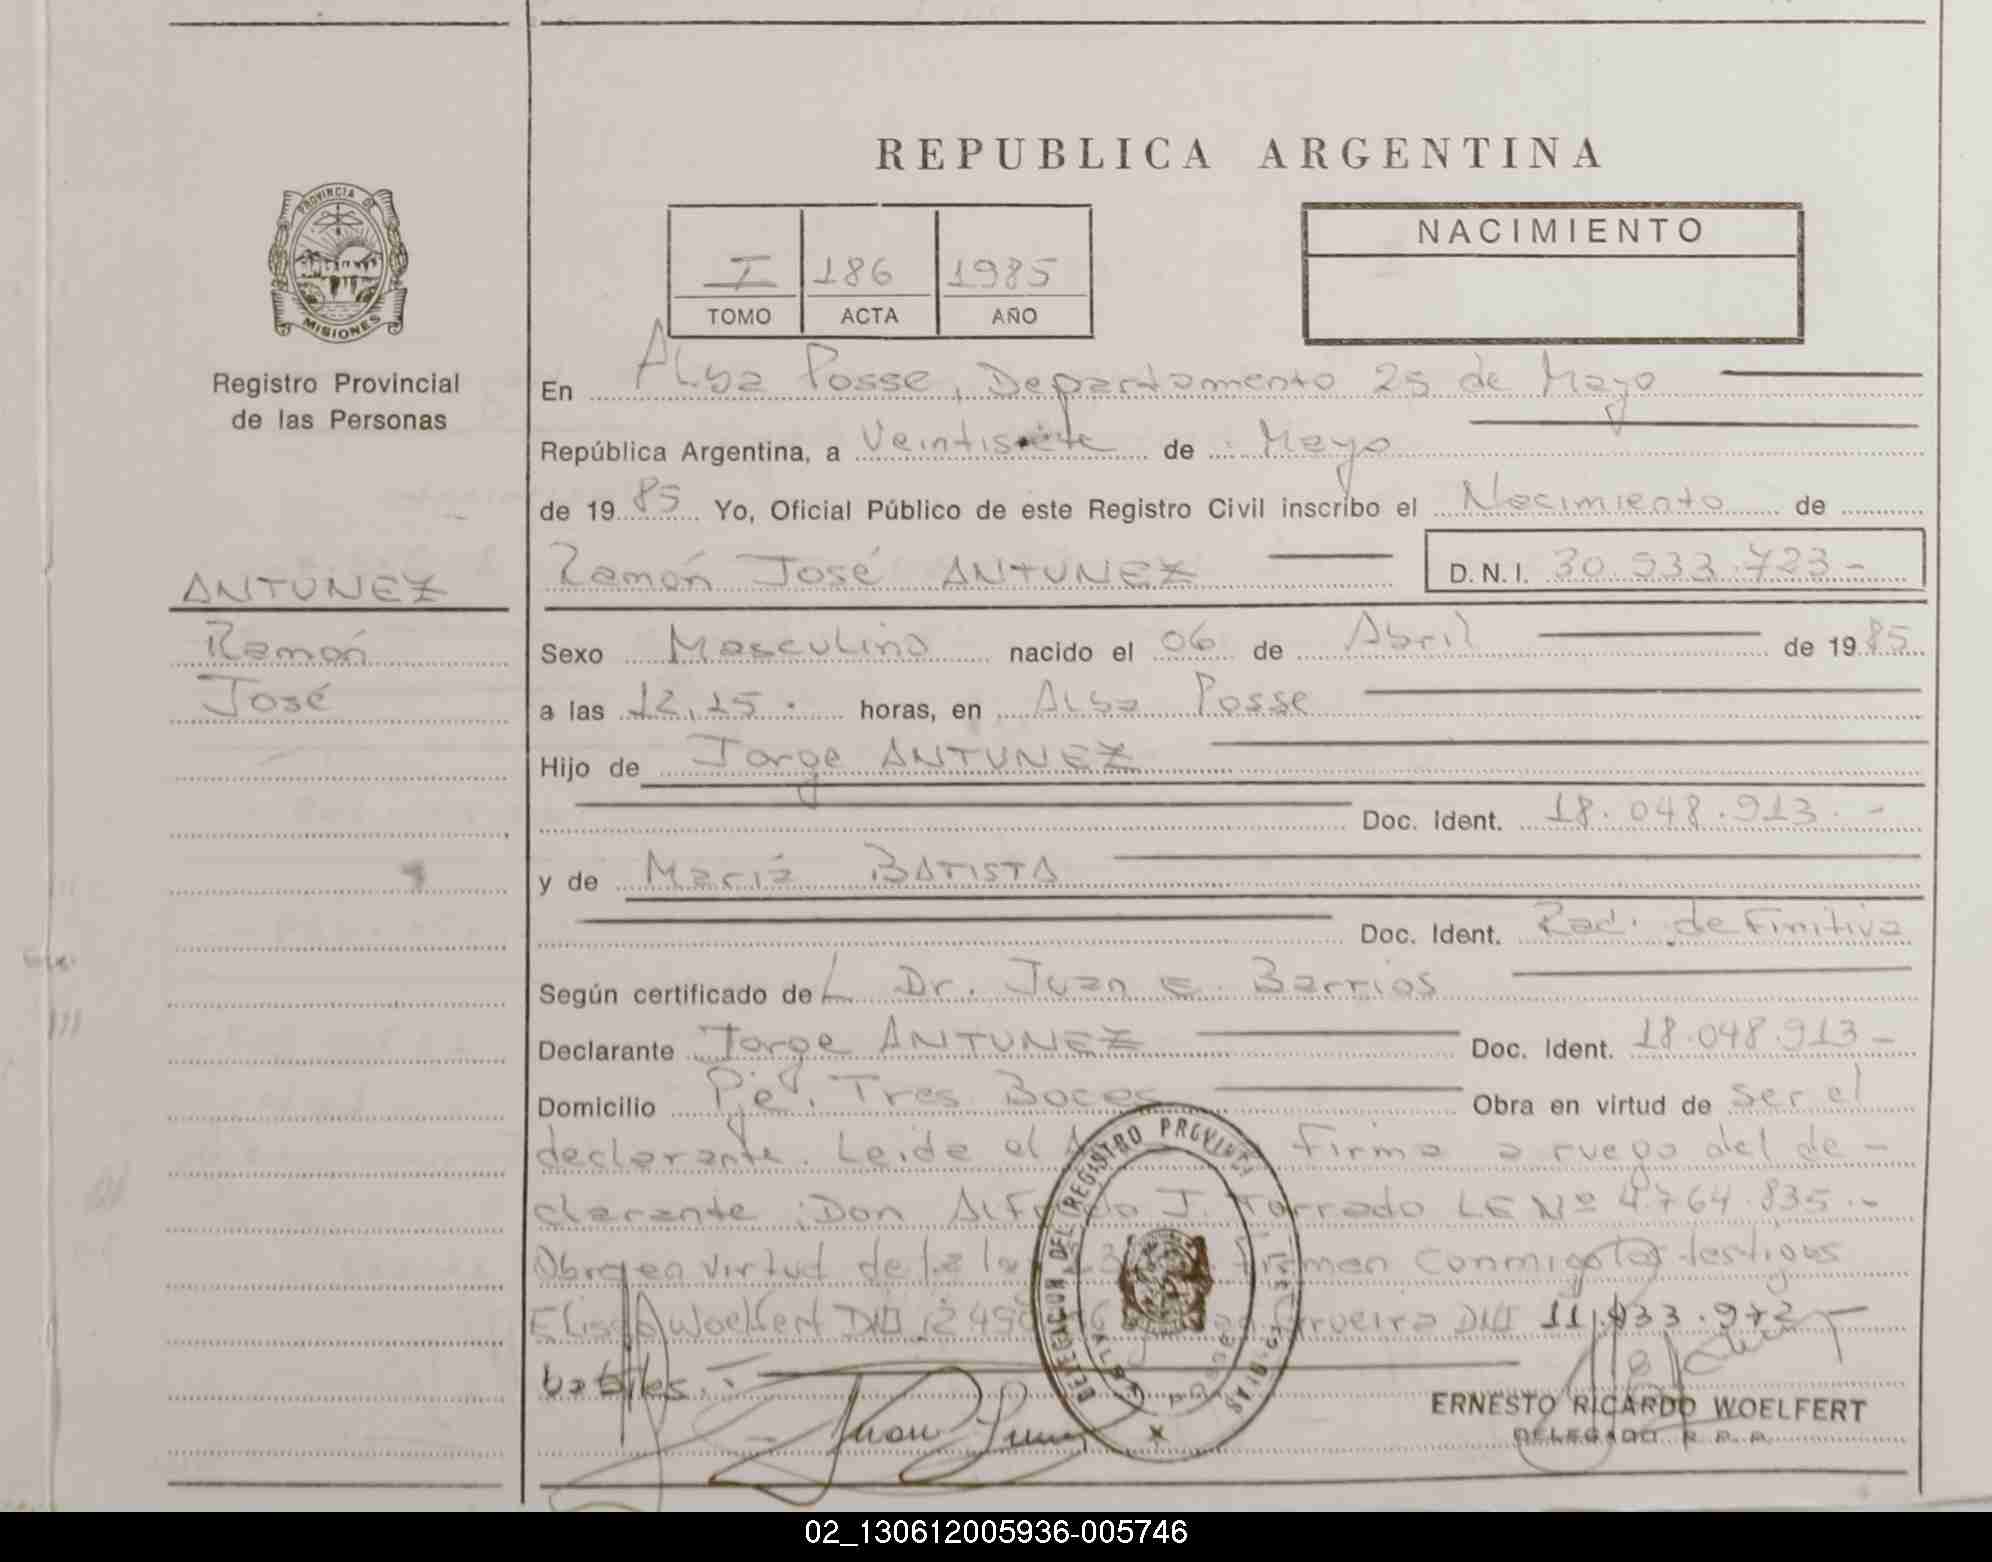 REPUBLICA ARGENTINA
NACIMIENTO
I 186 1985
TOMO ACTA AÑO
PROVINCIA DE
MISIONES
Registro Provincial
de las Personas
ANTUNEZ
Ramón
José
En Alba Posse, Departamento 25 de Mayo
República Argentina, a Veintisiete de Mayo
de 1985 Yo, Oficial Público de este Registro Civil inscribo el Nacimiento de
Ramón José ANTUNEZ D.N.I. 30.533.723-
Sexo Masculino nacido el 06 de Abril de 1985
a las 12,15. horas, en Alba Posse
Hijo de Jorge ANTUNEZ
Doc. Ident. 18.048.913.-
y de María BATISTA
Doc. Ident. Rad. definitiva
Según certificado del Dr. Juan E. Barrios
Declarante Jorge ANTUNEZ Doc. Ident. 18.048.913-
Domicilio Pje. Tres Bocas Obra en virtud de ser el
declarante. Leida el Firma a ruego del de-
clarante ;Don Alfredo J. Torrado LE Nº 4.764.835.-
Obra en virtud de la Firman conmigo los testigos
Woelfert DNI DNI 11.933.972-
babiles.-
DELEGACION DEL REGISTRO
ALBA POSSE
ERNESTO RICARDO WOELFERT
DELEGADO R. P. P.
02_130612005936-005746